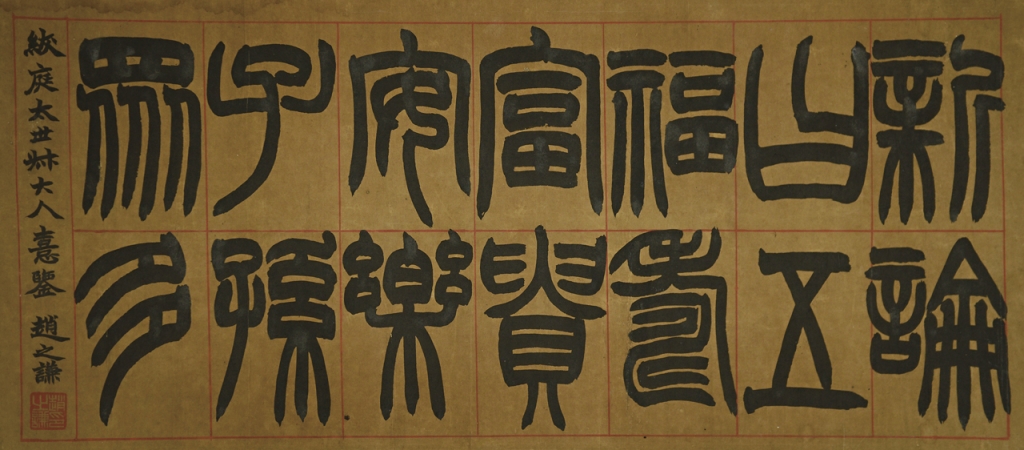 新論
曰五
福壽
富貴
安樂
子孫
眾多
紱庭太世叔大人憙鑒 趙之謙